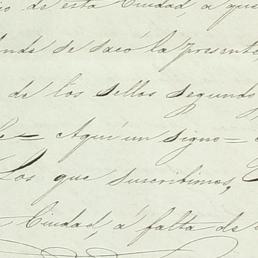 de esta Ciudad, a que
donde se sacó la presente
de los sellos segundo,
Aquí un signo=
Los que suscribimos,
Ciudad á falta de